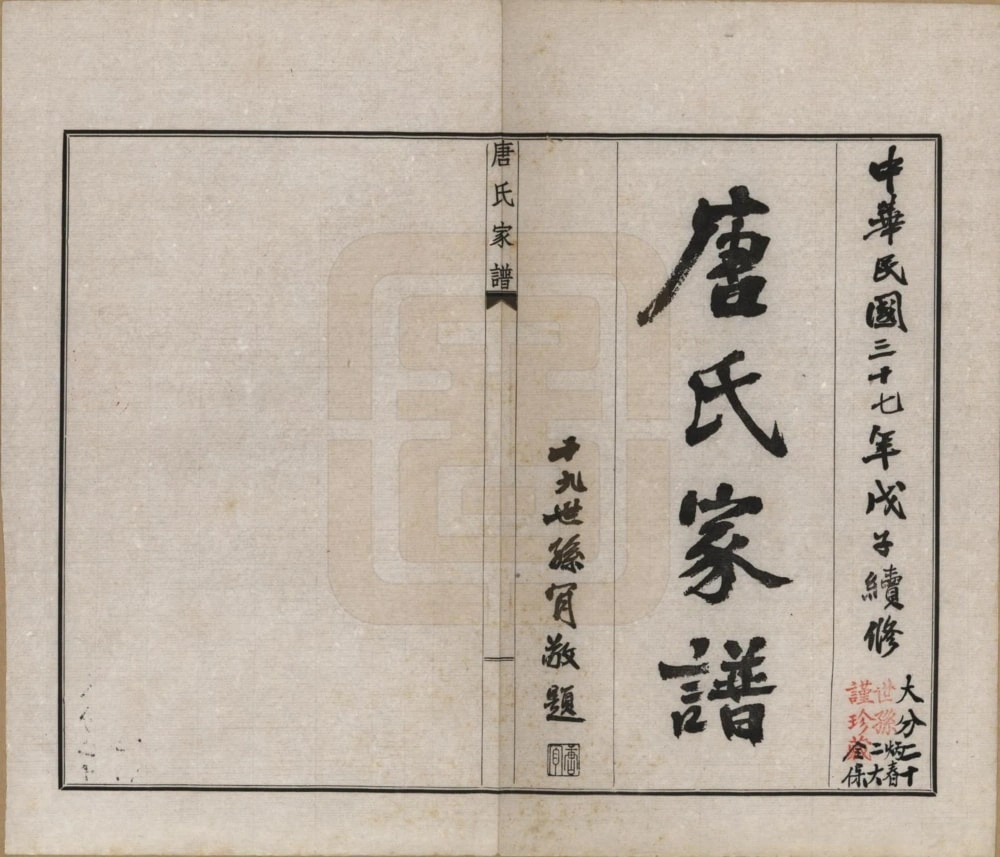 中華民國三十七年戊子續修
大分二十
世孫
炳春
二大
謹珍藏
全保
唐氏家譜
十九世孫肎敬題
唐氏家譜
一